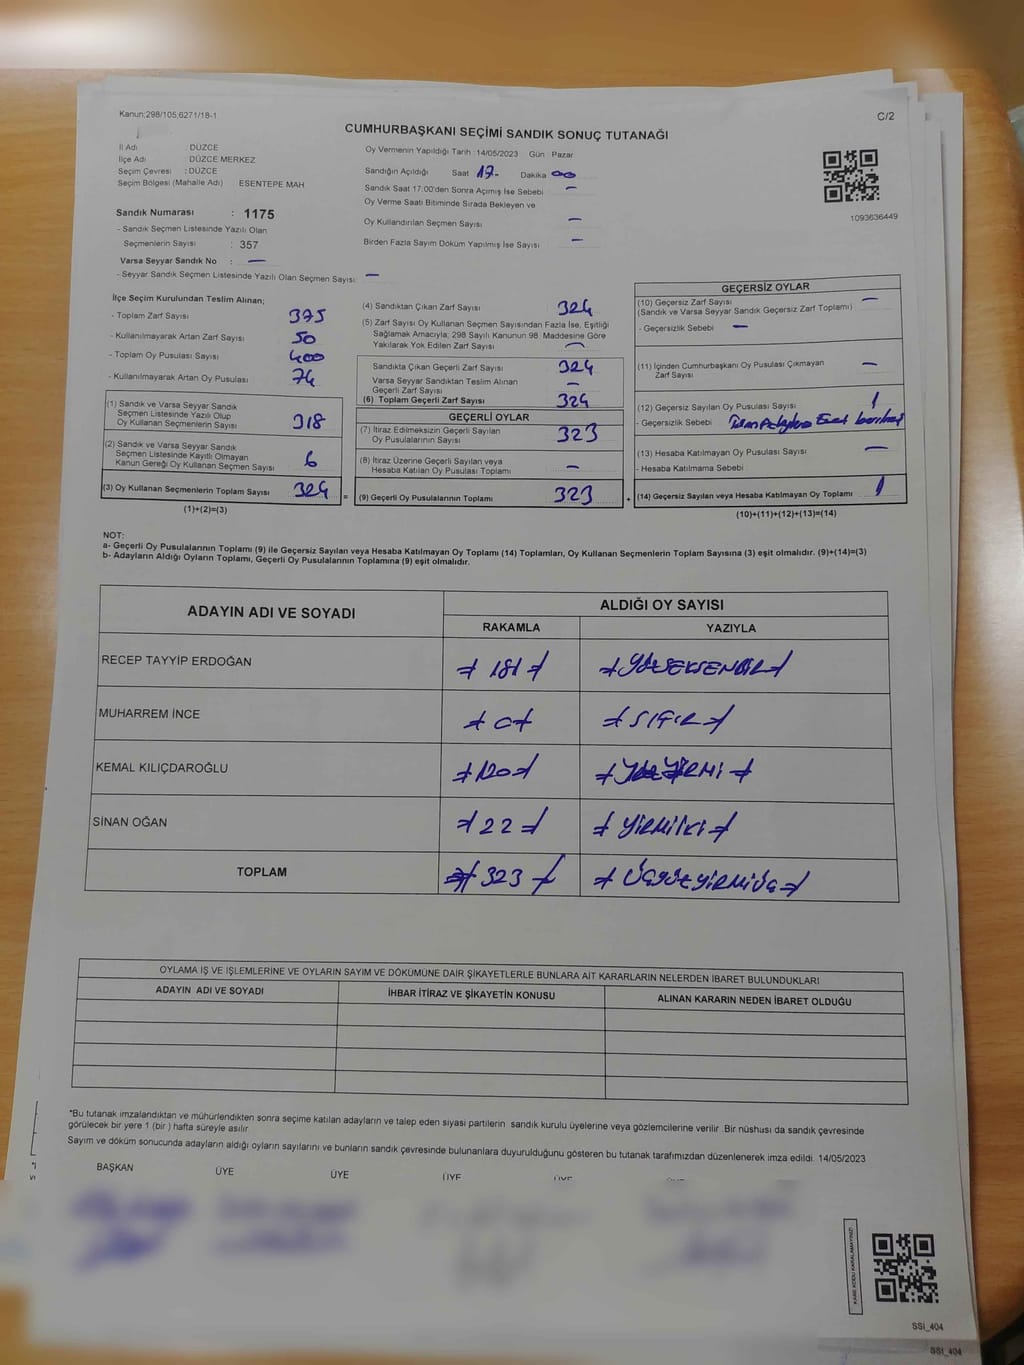 Kanun;298/105,6271/18-1
C/2
CUMHURBAŞKANI SEÇİMİ SANDIK SONUÇ TUTANAĞI
İl Adı DÜZCE
İlçe Adı DÜZCE MERKEZ
Seçim Çevresi : DÜZCE
Seçim Bölgesi (Mahalle Adı) ESENTEPE MAH
Sandık Numarası : 1175
- Sandık Seçmen Listesinde Yazılı Olan
Seçmenlerin Sayısı : 357
Varsa Seyyar Sandık No : —
- Seyyar Sandık Seçmen Listesinde Yazılı Olan Seçmen Sayısı: —
Oy Vermenin Yapıldığı Tarih :14/05/2023 Gün : Pazar
Sandığın Açıldığı Saat 17- Dakika 00
Sandık Saat 17:00'den Sonra Açımış İse Sebebi —
Oy Verme Saati Bitiminde Sırada Bekleyen ve
Oy Kullandırılan Seçmen Sayısı —
Birden Fazla Sayım Döküm Yapılmış İse Sayısı —
1093636449
İlçe Seçim Kurulundan Teslim Alınan;
- Toplam Zarf Sayısı 375
- Kullanılmayarak Artan Zarf Sayısı 50
- Toplam Oy Pusulası Sayısı 400
- Kullanılmayarak Artan Oy Pusulası 74
(1) Sandık ve Varsa Seyyar Sandık
Seçmen Listesinde Yazılı Olup
Oy Kullanan Seçmenlerin Sayısı 318
(2) Sandık ve Varsa Seyyar Sandık
Seçmen Listesinde Kayıtlı Olmayan
Kanun Gereği Oy Kullanan Seçmen Sayısı 6
(3) Oy Kullanan Seçmenlerin Toplam Sayısı 324 =
(1)+(2)=(3)
(4) Sandıktan Çıkan Zarf Sayısı 324
(5) Zarf Sayısı Oy Kullanan Seçmen Sayısından Fazla İse, Eşitliği
Sağlamak Amacıyla; 298 Sayılı Kanunun 98. Maddesine Göre
Yakılarak Yok Edilen Zarf Sayısı —
Sandıkta Çıkan Geçerli Zarf Sayısı 324
Varsa Seyyar Sandıktan Teslim Alınan
Geçerli Zarf Sayısı —
(6) Toplam Geçerli Zarf Sayısı 324
GEÇERLİ OYLAR
(7) İtiraz Edilmeksizin Geçerli Sayılan
Oy Pusulalarının Sayısı 323
(8) İtiraz Üzerine Geçerli Sayılan veya
Hesaba Katılan Oy Pusulası Toplamı —
(9) Geçerli Oy Pusulalarının Toplamı 323 +
GEÇERSİZ OYLAR
(10) Geçersiz Zarf Sayısı —
(Sandık ve Varsa Seyyar Sandık Geçersiz Zarf Toplamı)
- Geçersizlik Sebebi —
(11) İçinden Cumhurbaşkanı Oy Pusulası Çıkmayan
Zarf Sayısı —
(12) Geçersiz Sayılan Oy Pusulası Sayısı 1
- Geçersizlik Sebebi Evet
(13) Hesaba Katılmayan Oy Pusulası Sayısı —
- Hesaba Katılmama Sebebi
(14) Geçersiz Sayılan veya Hesaba Katılmayan Oy Toplamı 1
(10)+(11)+(12)+(13)=(14)
NOT:
a- Geçerli Oy Pusulalarının Toplamı (9) ile Geçersiz Sayılan veya Hesaba Katılmayan Oy Toplamı (14) Toplamları, Oy Kullanan Seçmenlerin Toplam Sayısına (3) eşit olmalıdır. (9)+(14)=(3)
b- Adayların Aldığı Oyların Toplamı, Geçerli Oy Pusulalarının Toplamına (9) eşit olmalıdır.
ADAYIN ADI VE SOYADI ALDIĞI OY SAYISI
RAKAMLA YAZIYLA
RECEP TAYYİP ERDOĞAN 181 YÜZSEKSENBİR
MUHARREM İNCE 0 SIFIR
KEMAL KILIÇDAROĞLU 120 YÜZYİRMİ
SİNAN OĞAN 22 YİRMİİKİ
TOPLAM 323 ÜÇYÜZYİRMİÜÇ
OYLAMA İŞ VE İŞLEMLERİNE VE OYLARIN SAYIM VE DÖKÜMÜNE DAİR ŞİKAYETLERLE BUNLARA AİT KARARLARIN NELERDEN İBARET BULUNDUKLARI
ADAYIN ADI VE SOYADI İHBAR İTİRAZ VE ŞİKAYETİN KONUSU ALINAN KARARIN NEDEN İBARET OLDUĞU
*Bu tutanak imzalandıktan ve mühürlendikten sonra seçime katılan adayların ve talep eden siyasi partilerin sandık kurulu üyelerine veya gözlemcilerine verilir .Bir nüshası da sandık çevresinde
görülecek bir yere 1 (bir ) hafta süreyle asılır.
Sayım ve döküm sonucunda adayların aldığı oyların sayılarını ve bunların sandık çevresinde bulunanlara duyurulduğunu gösteren bu tutanak tarafımızdan düzenlenerek imza edildi. 14/05/2023
BAŞKAN ÜYE ÜYE ÜYE ÜYE ÜYE
KARE KODU KARALAMAYINIZ!
SSİ_404
SSİ_404